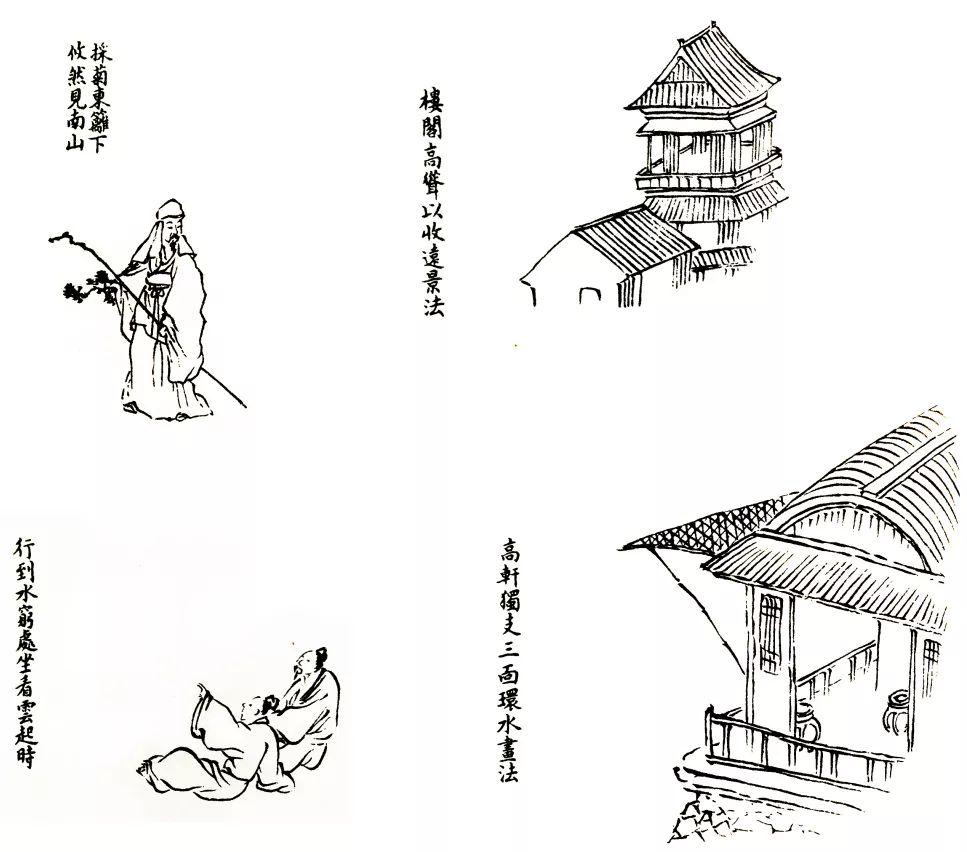 採菊東籬下
攸然見南山
樓閣高聳以收遠景法
行到水窮處坐看雲起時
高軒獨支三面環水畫法